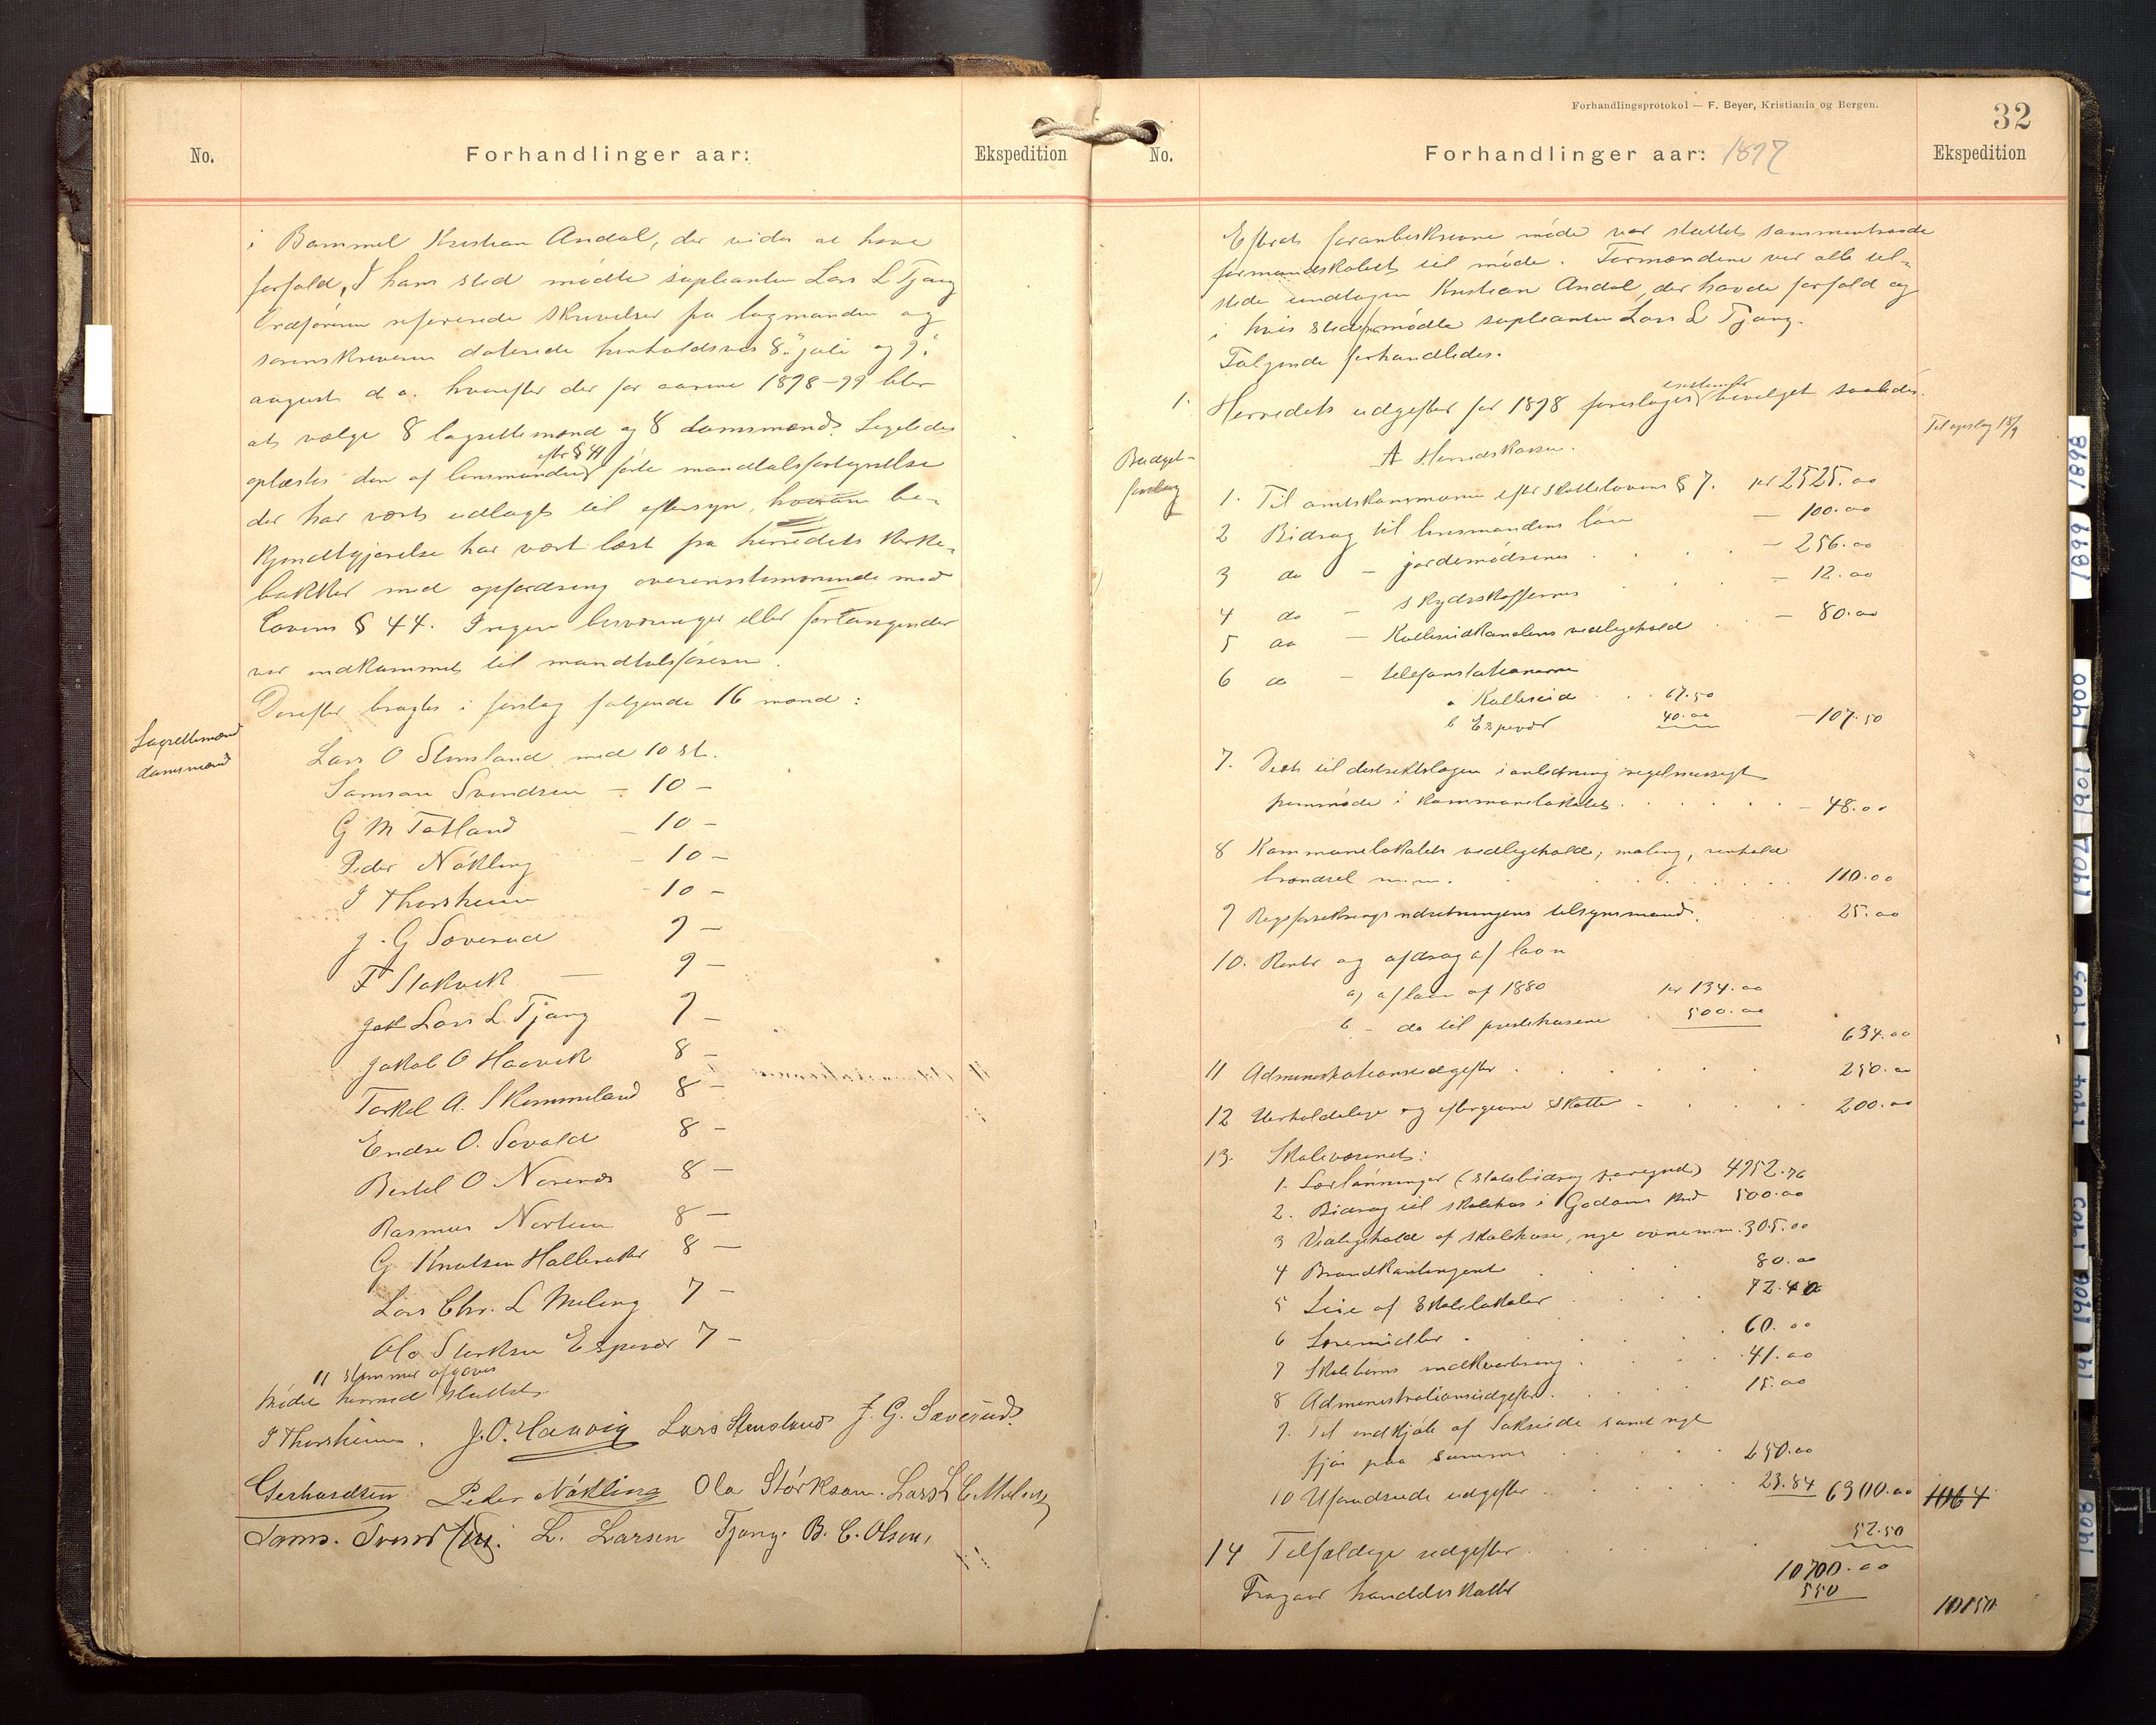 No.
Forhandlinger aar:
Ekspedition
i Bømmel Kristian Andal, der vides at have
forfald, I hans sted mødte supleanten Lars L Tjong
Ordføreren refererede skrivelser fra lagmanden og
sorenskriveren daterede henholdsvis 8. juli og 9.
august d a. hvorefter der for aarene 1898-99 blir
at vælge 8 lagrettemænd og 8 domsmænd. Ligeledes
efter § 41
oplæstes den af lensmanden førte mandtalsfortegnelse
der har vært udlagt til eftersyn, hvorom be-
kjendtgjørelse har vært læst fra herredets kirke-
bakker med opfordring overensstemmende med
Lovens § 44. Ingen besværinger eller forlangender
var indkommet til mandtalsføreren.
Derefter bragtes i forslag følgende 16 mænd:
Lagrettemænd
domsmænd
Lars O Stensland med 10 st.
Samson Svendsen - 10 -
G M Totland - 10 -
Peder Nökling - 10 -
I Thorsheim - 10 -
J. G Sæverud 9 -
F Stokvik — 9 -
Lars L. Tjong 9 -
Jakob O Haavik 8 -
Torkel A. Skimmeland 8 -
Endre O. Sovold 8 -
Bertel O Norenæs 8 -
Rasmus Nortun 8 -
G Knutsen Halleraker 8 -
Lars Chr. L Meling 7 -
Ola Størksen Espevær 7 -
11 stemmer afgaves
Mødet hermed sluttet
I Thorsheim. J. O. Haavig Lars Stensland J. G. Sæverud.
Gerhardsen Peder Nökling Ola Störksen. Lars L C Meling
Sams. Svendsen. L. Larsen Tjong. B. C. Olsen,
Forhandlingsprotokol — F. Beyer, Kristiania og Bergen.
32
No.
Forhandlinger aar: 1897
Ekspedition
Efterat foranbeskrevne møde var sluttet sammentraadte
formandskabet til møde. Formændene var alle til-
stede undtagen Kristian Andal, der havde forfald og
i hvis sted mødte supleanten Lars L Tjong.
Følgende forhandledes.
enstemmig
1. Herredets udgifter for 1898 foreslages bevilget saaledes.
Til opslag 18/9
Budget-
forslag
A Herredskassen.
1. Til amtskommunen efter skattelovens § 7. kr 2525.00
2 Bidrag til lensmandens løn — 100.00
3 do - jordemødrenes . . . — 256.00
4 do — skydsskafferne — 12.00
5 do — Kulleseidkanalens vedligehold . — 80.00
6 do — telefonstationerne
a Kulleseid . . 67.50
b Espevær 40.00 — 107.50
7. Do til distriktslægen i anledning regelmæssigt
fremmøde i kommunelokalet . . . . — 48.00
8 Kommunelokalets vedligehold, maling, renhold
brændsel m.m. . . . . 110.00
9 Rigsforsikringsindretningens tilsynsmænd. . 25.00
10. Renter og afdrag af laan
a) af laan af 1880 kr 134.00
b - do til præstehusene . 500.00
634.00
11 Administrationsudgifter . . . . . 250.00
12 Uerholdelige og eftergivne skatter . . . . 200.00
13. Skolevæsenet:
1. Lærlønninger (statsbidrag fraregnet) 4952.76
2. Bidrag til skolehus i Godøens kred 500.00
3 Vedligehold af skolehuse, nye ovne m.m. 305.00
4 Brandkontingent . . . 80.00
5 Leie af skolelokaler . . . 72.40
6 Læremidler . . . . 60.00
7 Skolebørns indkvartering . . . . 41.00
8 Administrationsudgifter. . . . 15.00
9. Til indkjøb af Sakseide samt nye
fjøs paa samme . . . . 250.00
10 Uforudseede udgifter . . . . 23.84 6300.00 1064
14 Tilfældige udgifter . . . . 52.50
10700.00
Fragaar handelsskatter 550
10150
1898
1899
1900
1901
1902
1903
1904
1905
1906
1908